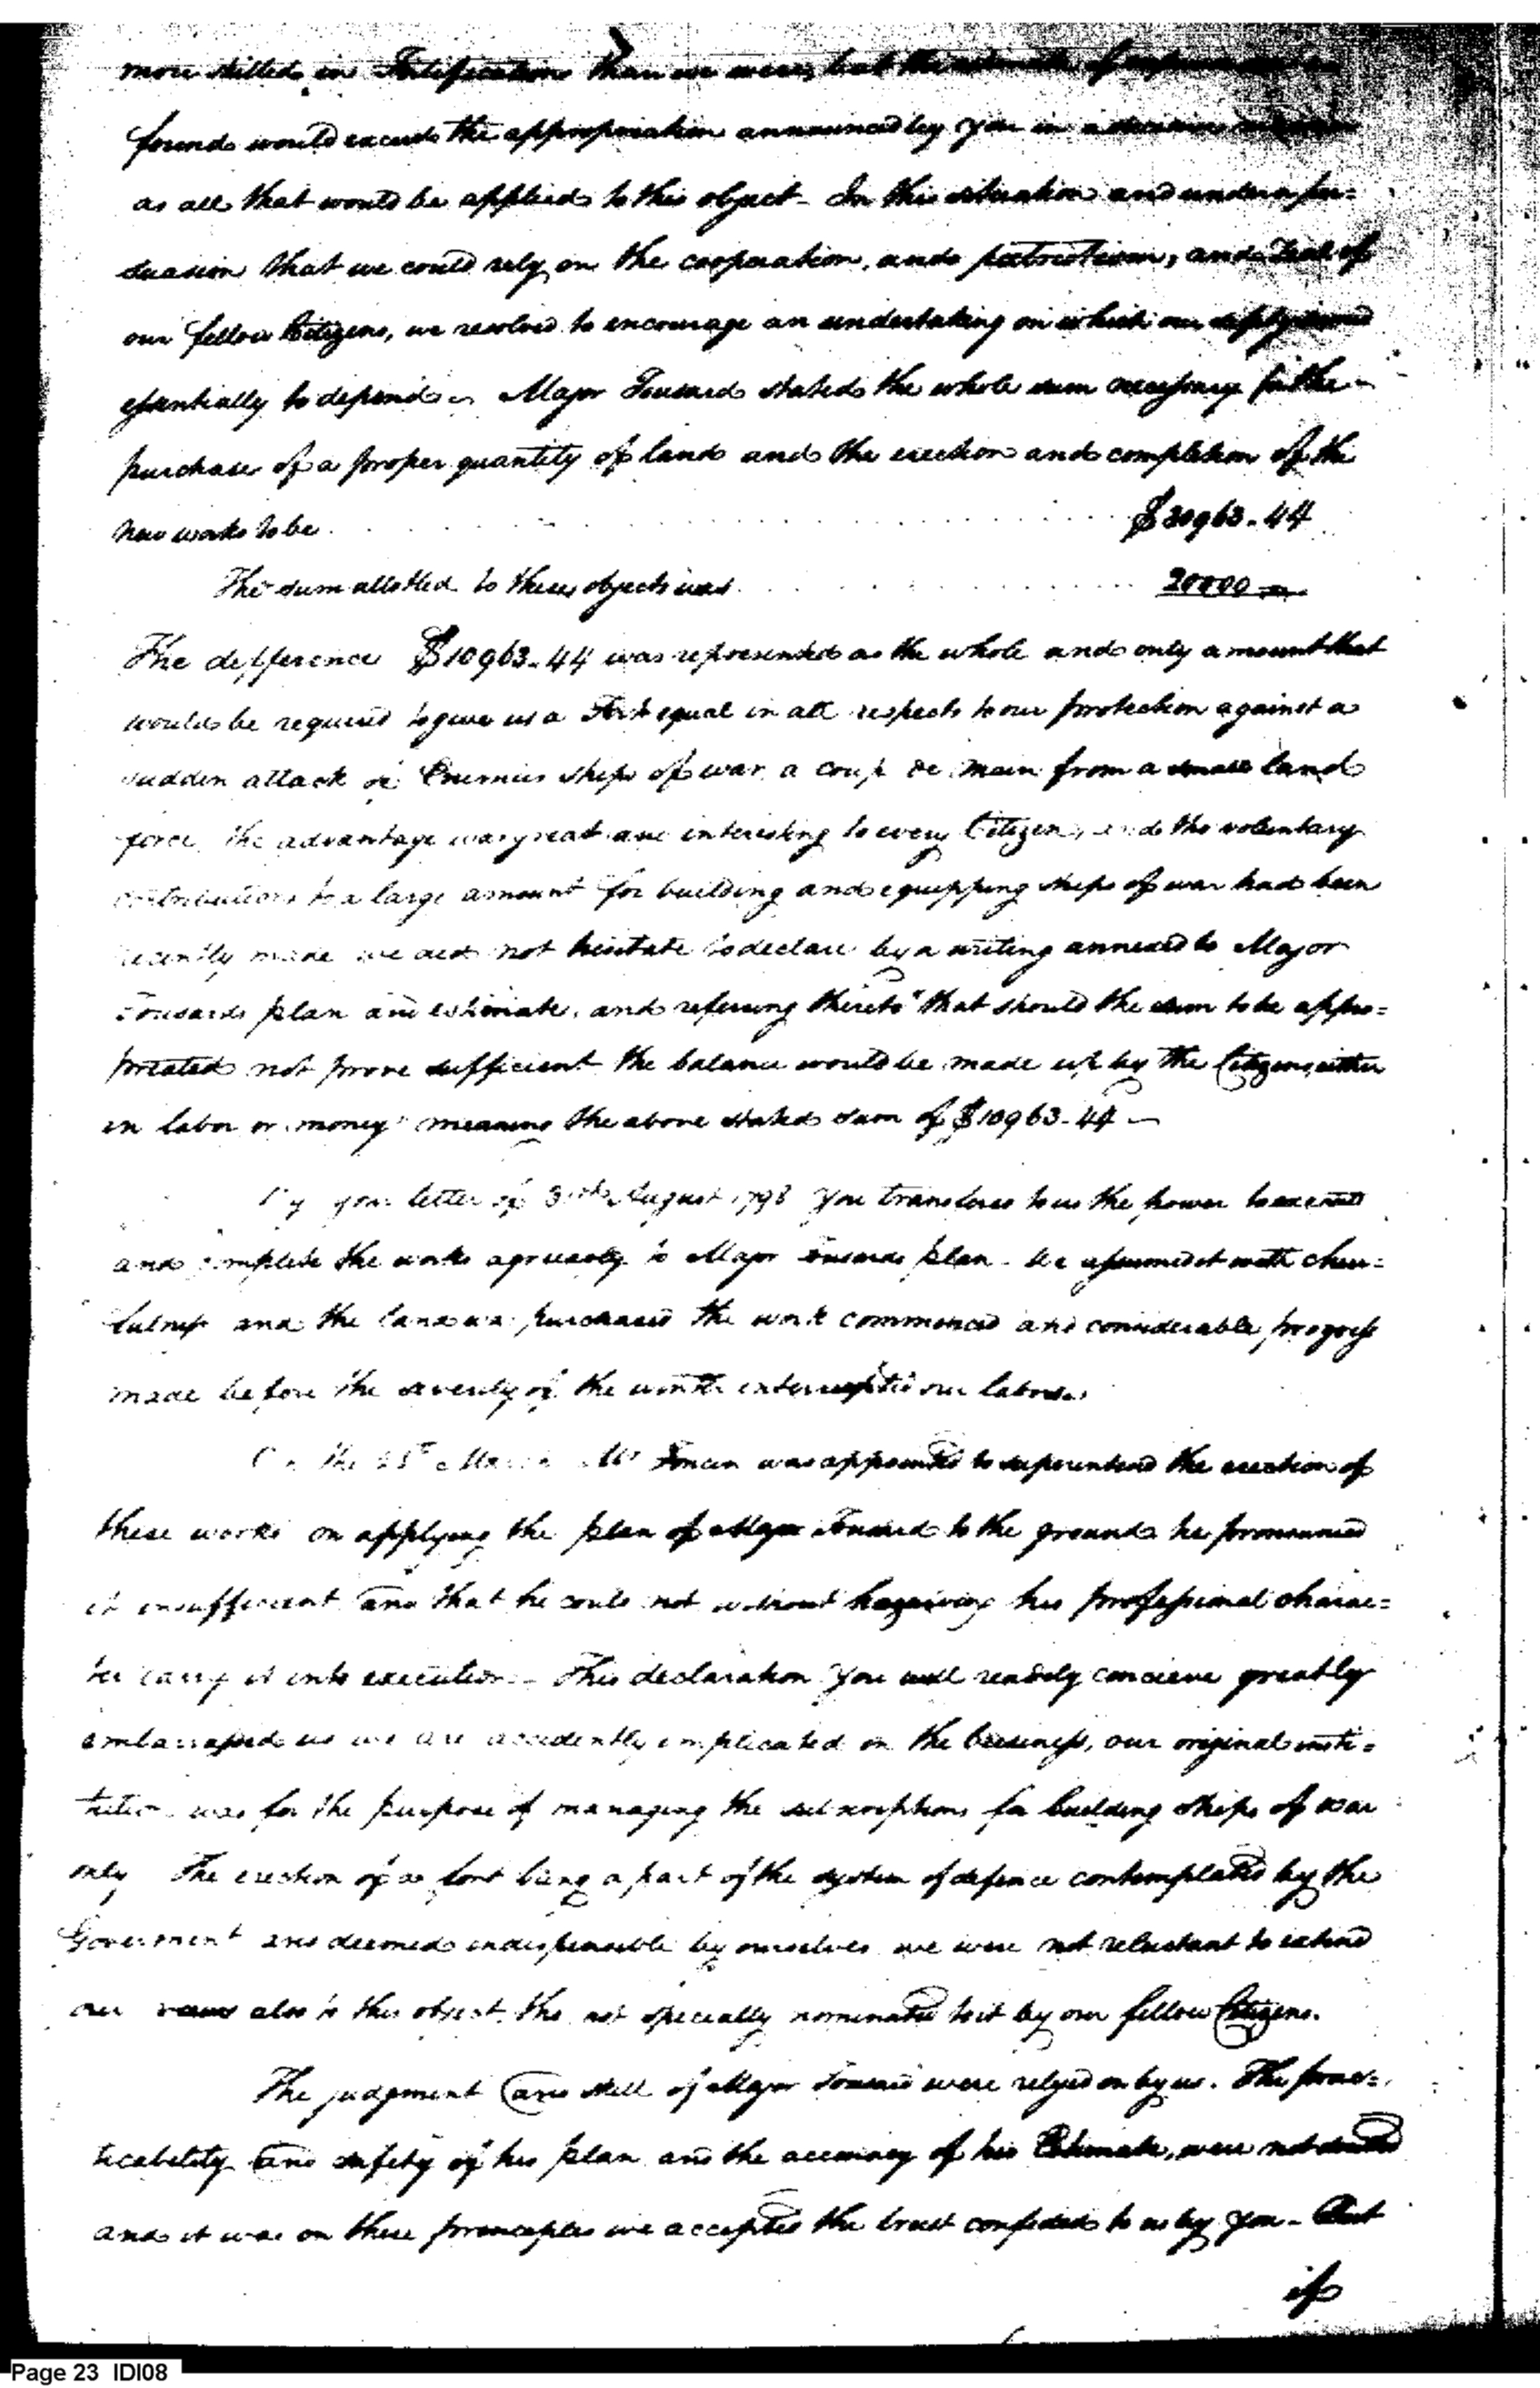 more skilled in Fortifications than we were, but the estimate of
found would exceed the appropriation announced by you in a
as all that would be applied to this object - In this situation and under a per=
suasion that we could rely on the cooperation, and patriotism, and Zeal of
our fellow Citizens, we resolved to encourage an undertaking on which our safety
essentially to depend - Major Tousard stated the whole sum necessary for the
purchase of a proper quantity of land and the erection and completion of the
new works to be . . . $30963.44
The sum allotted to these objects was . . . 20000 -
The difference $10963.44 was represented as the whole and only amount that
would be required to give us a Fort equal in all respects to our protection against a
sudden attack of Enemies ships of war a coup de main from a small land
force, the advantage was great and interesting to every Citizen, and the voluntary
contributions to a large amount for building and equipping ships of war had been
recently made we did not hesitate to declare by a writing annexed to Major
Tousards plan and estimate, and refering thereto "that should the sum to be appro=
priated not prove sufficient the balance would be made up by the Citizens, either
in labor or money" meaning the above stated sum of $10963.44 -
By your letter of August 1798 you transfered to us the power to
and complete the works agreeably to Major Tousards plan - We assumed it with chear=
fulness and the land was purchased the work commenced and considerable progress
made before the severity of the winter interrupted our labors.
On the 25th March Mr Foncin was appointed to superintend the erection of
these works on applying the plan of Major Tousard to the ground he pronounced
it insufficient and that he could not without his professional charac=
ter carry it into execution - This declaration you will readily concieve greatly
embarrassed us we are accidently implicated in the business, our original insti=
tution was for the purpose of managing the subscriptions for building ships of war
only The erection of a fort being a part of the system of defence contemplated by the
Goverment and deemed indispensible by ourselves we were not reluctant to extend
our views also to this object, tho not specially nominated to it by our fellow Citizens.
The judgment and skill of Major Tousard were relyed on by us. The prac=
ticability and safety of his plan and the accuracy of his Estimate, were not doubted
and it was on these principles we accepted the trust confided to us by you - But
if
Page 23 IDI08